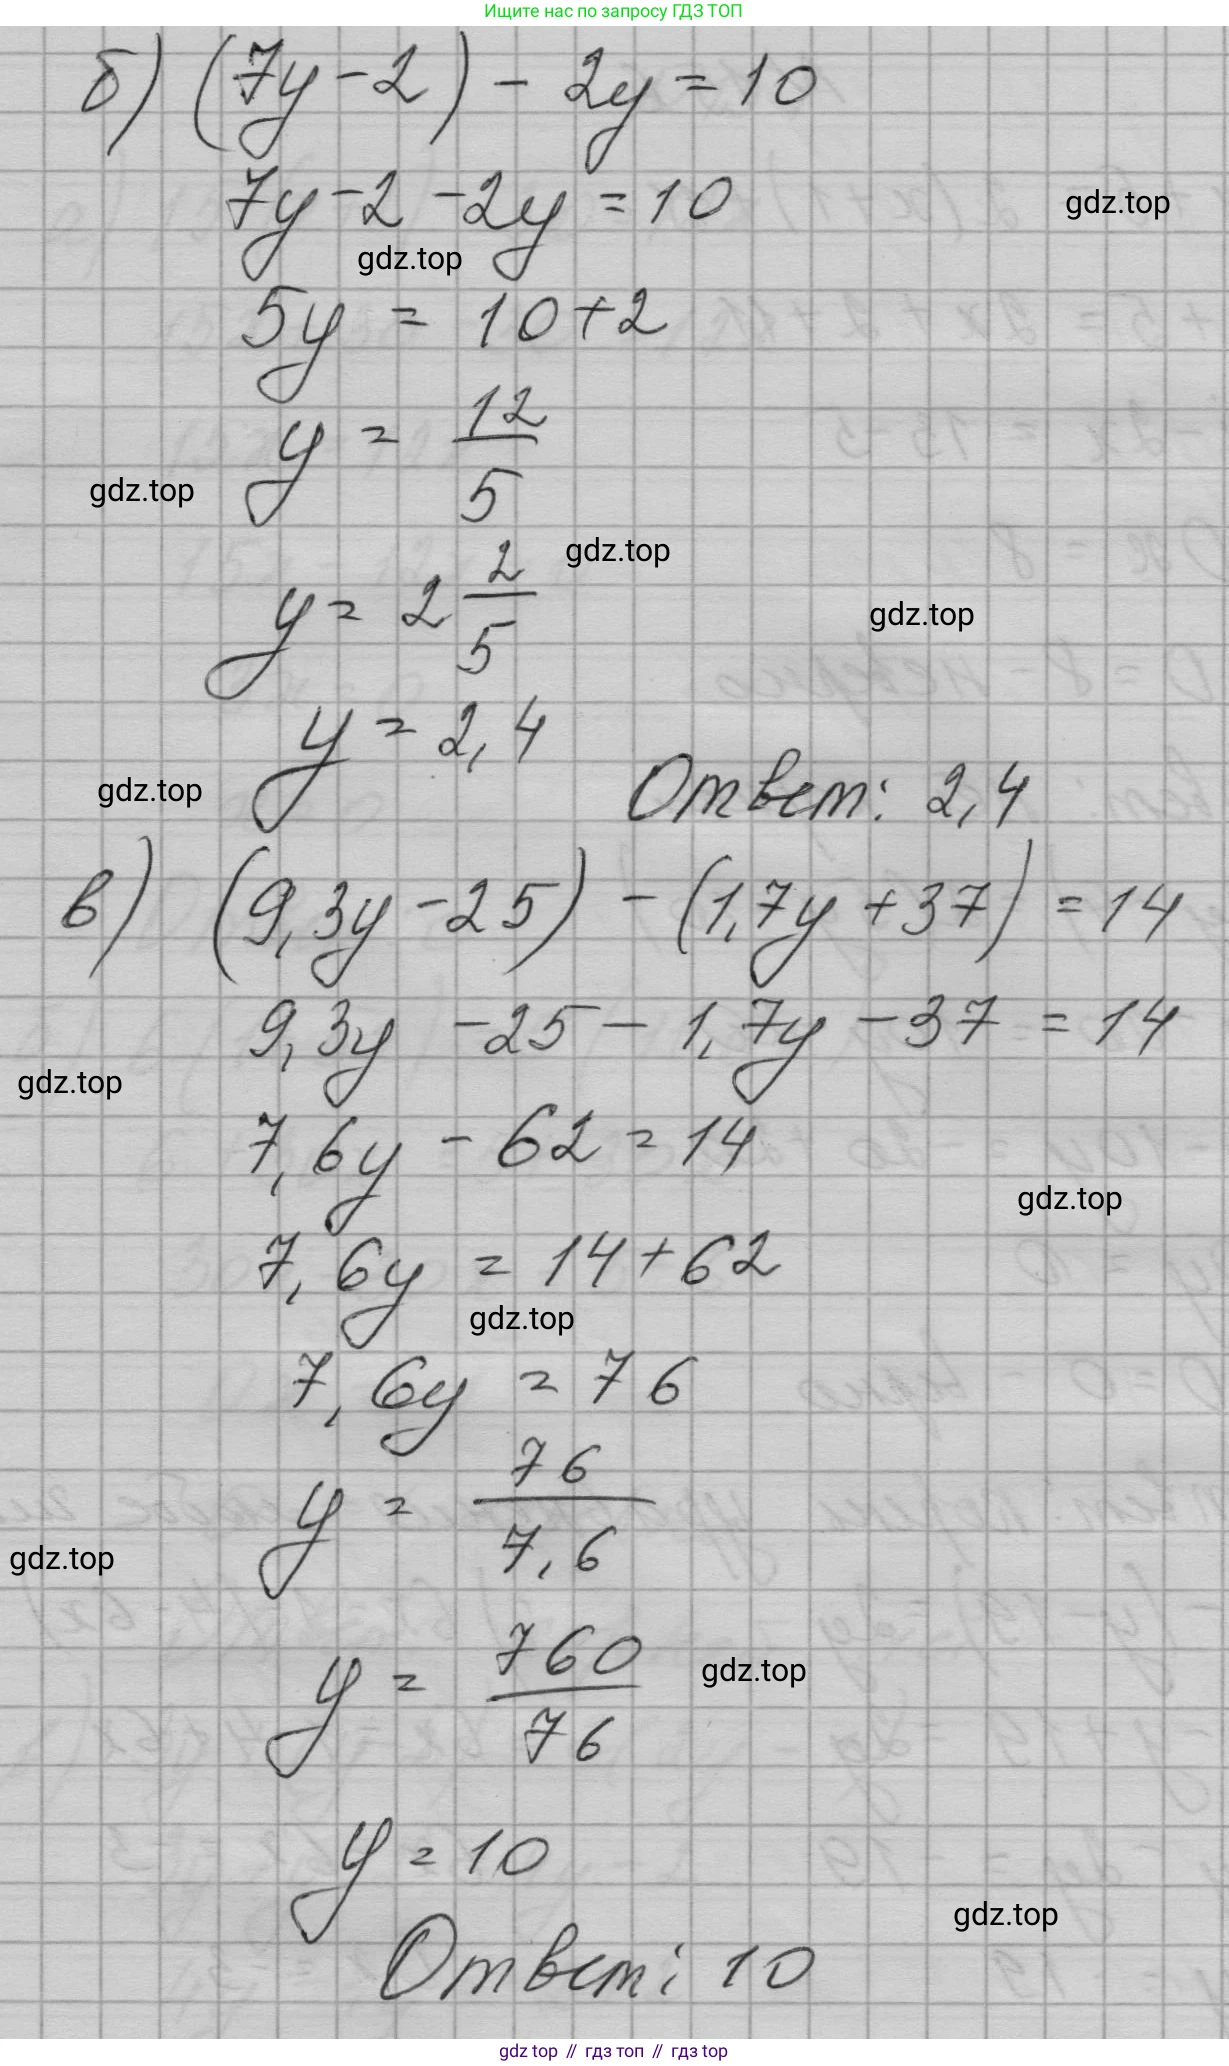 Ищите нас по запросу ГДЗ ТОП
б) (7y - 2) - 2y = 10
7y - 2 - 2y = 10
gdz.top
gdz.top
5y = 10 + 2
y = 12/5
gdz.top
gdz.top
y = 2 2/5
gdz.top
y = 2,4
gdz.top
Ответ: 2,4
в) (9,3y - 25) - (1,7y + 37) = 14
9,3y - 25 - 1,7y - 37 = 14
gdz.top
7,6y - 62 = 14
gdz.top
7,6y = 14 + 62
gdz.top
7,6y = 76
y = 76/7,6
gdz.top
y = 760/76
gdz.top
y = 10
gdz.top
Ответ: 10
gdz top // гдз топ // гдз top